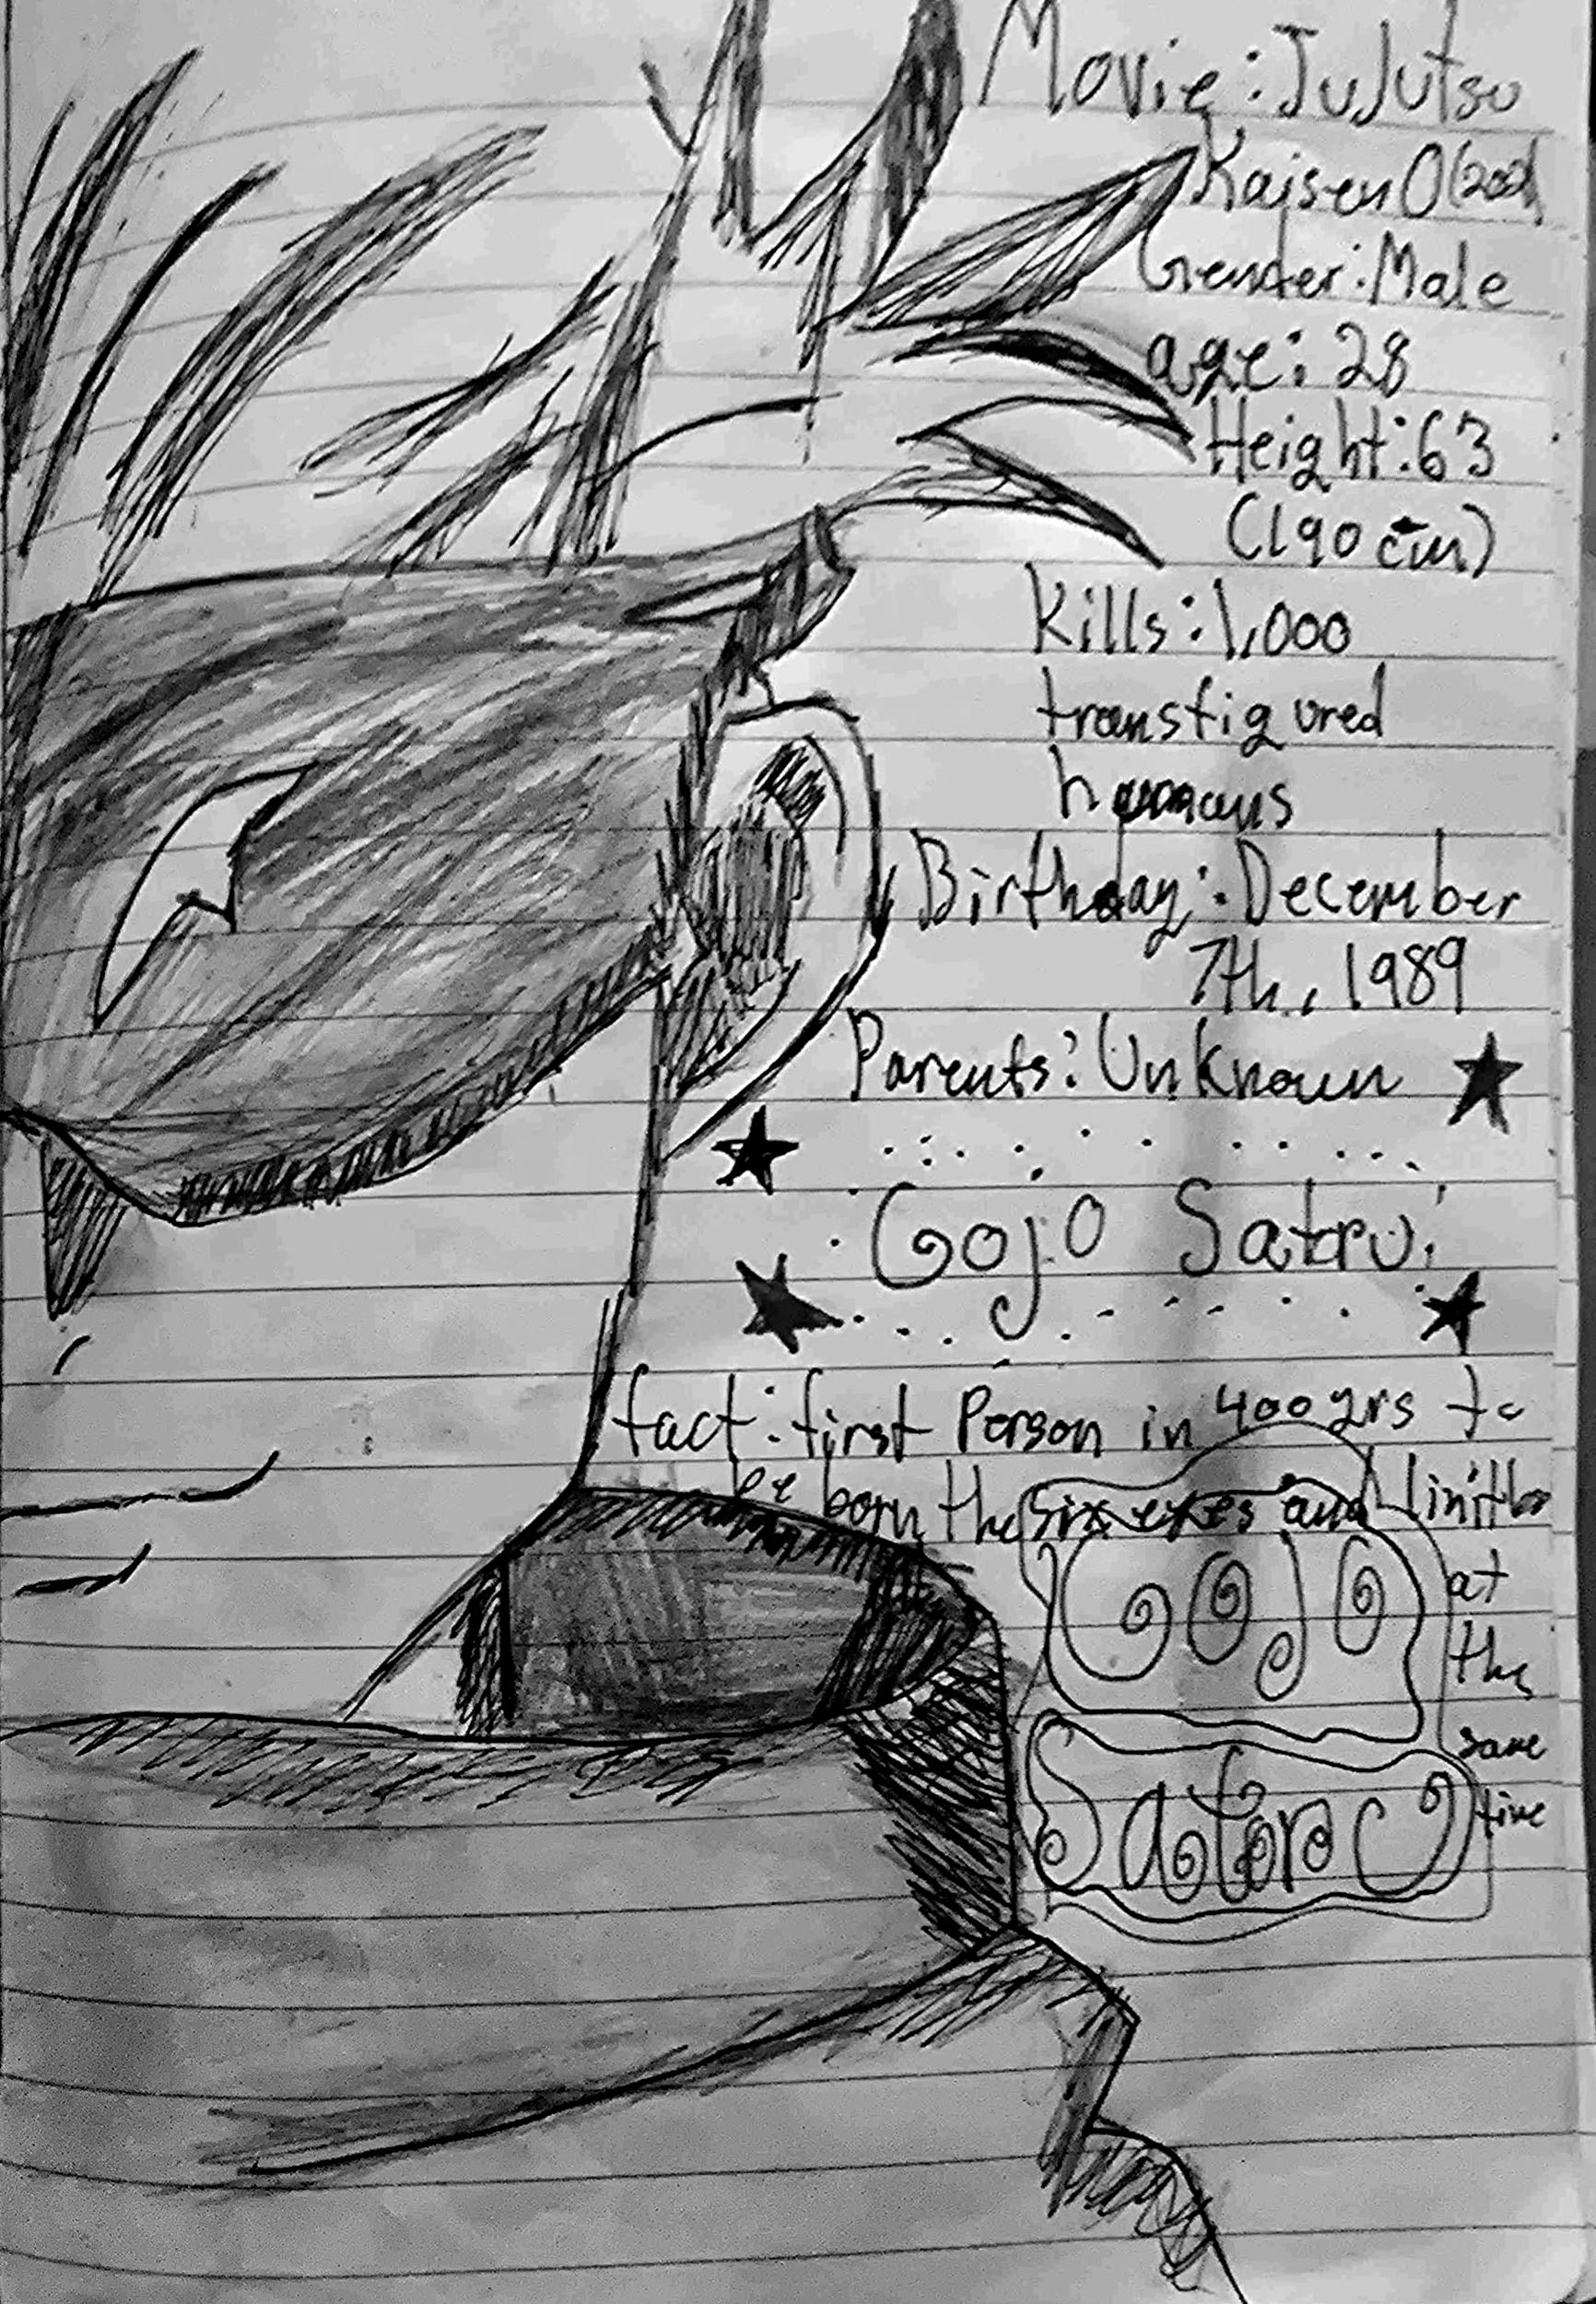 Movie: JuJutsu
Kaisen 0 (202
Gender: Male
age: 28
Height: 63
(190 cm)
Kills: 1,000
transfigured
humans
Birthday: December
7th, 1989
Parents: Unknown
Gojo Satru
fact: first Person in 400 yrs to
be born the six eyes and
at
the
same
time
Gojo
Satoru